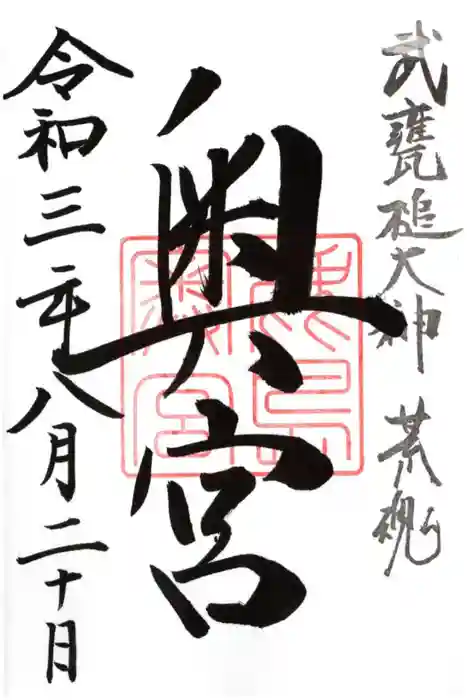 武甕槌大神 荒魂
奥宮
令和三年八月二十日